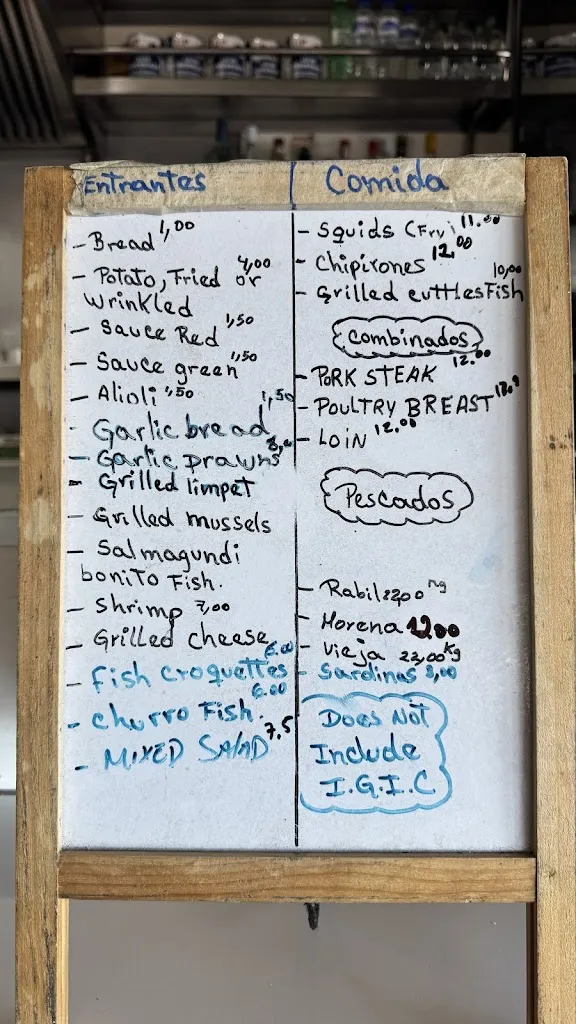 Entrantes
- Bread 1,00
- Potato, Fried or 4,00
wrinkled
- Sauce Red 1,50
- Sauce green 1,50
- Alioli 1,50
- Garlic bread 1,50
- Garlic Prawns
- Grilled limpet
- Grilled mussels
- Salmagundi
bonito Fish.
- Shrimp 7,00
- Grilled cheese
- Fish croquettes 6.00
- Churro Fish. 6.00
- MIXED SALAD 7.5
Comida
- Squids (Fry) 11.00
- Chipirones 12.00
- Grilled cuttlesFish 10,00
Combinados
- PORK STEAK 12.00
- POULTRY BREAST
- LOIN 12.00
Pescados
- Rabil 22,00
- Morena 12.00
- Vieja 23,00 kg
- Sardinas 8,00
Does Not
Include
I.G.I.C